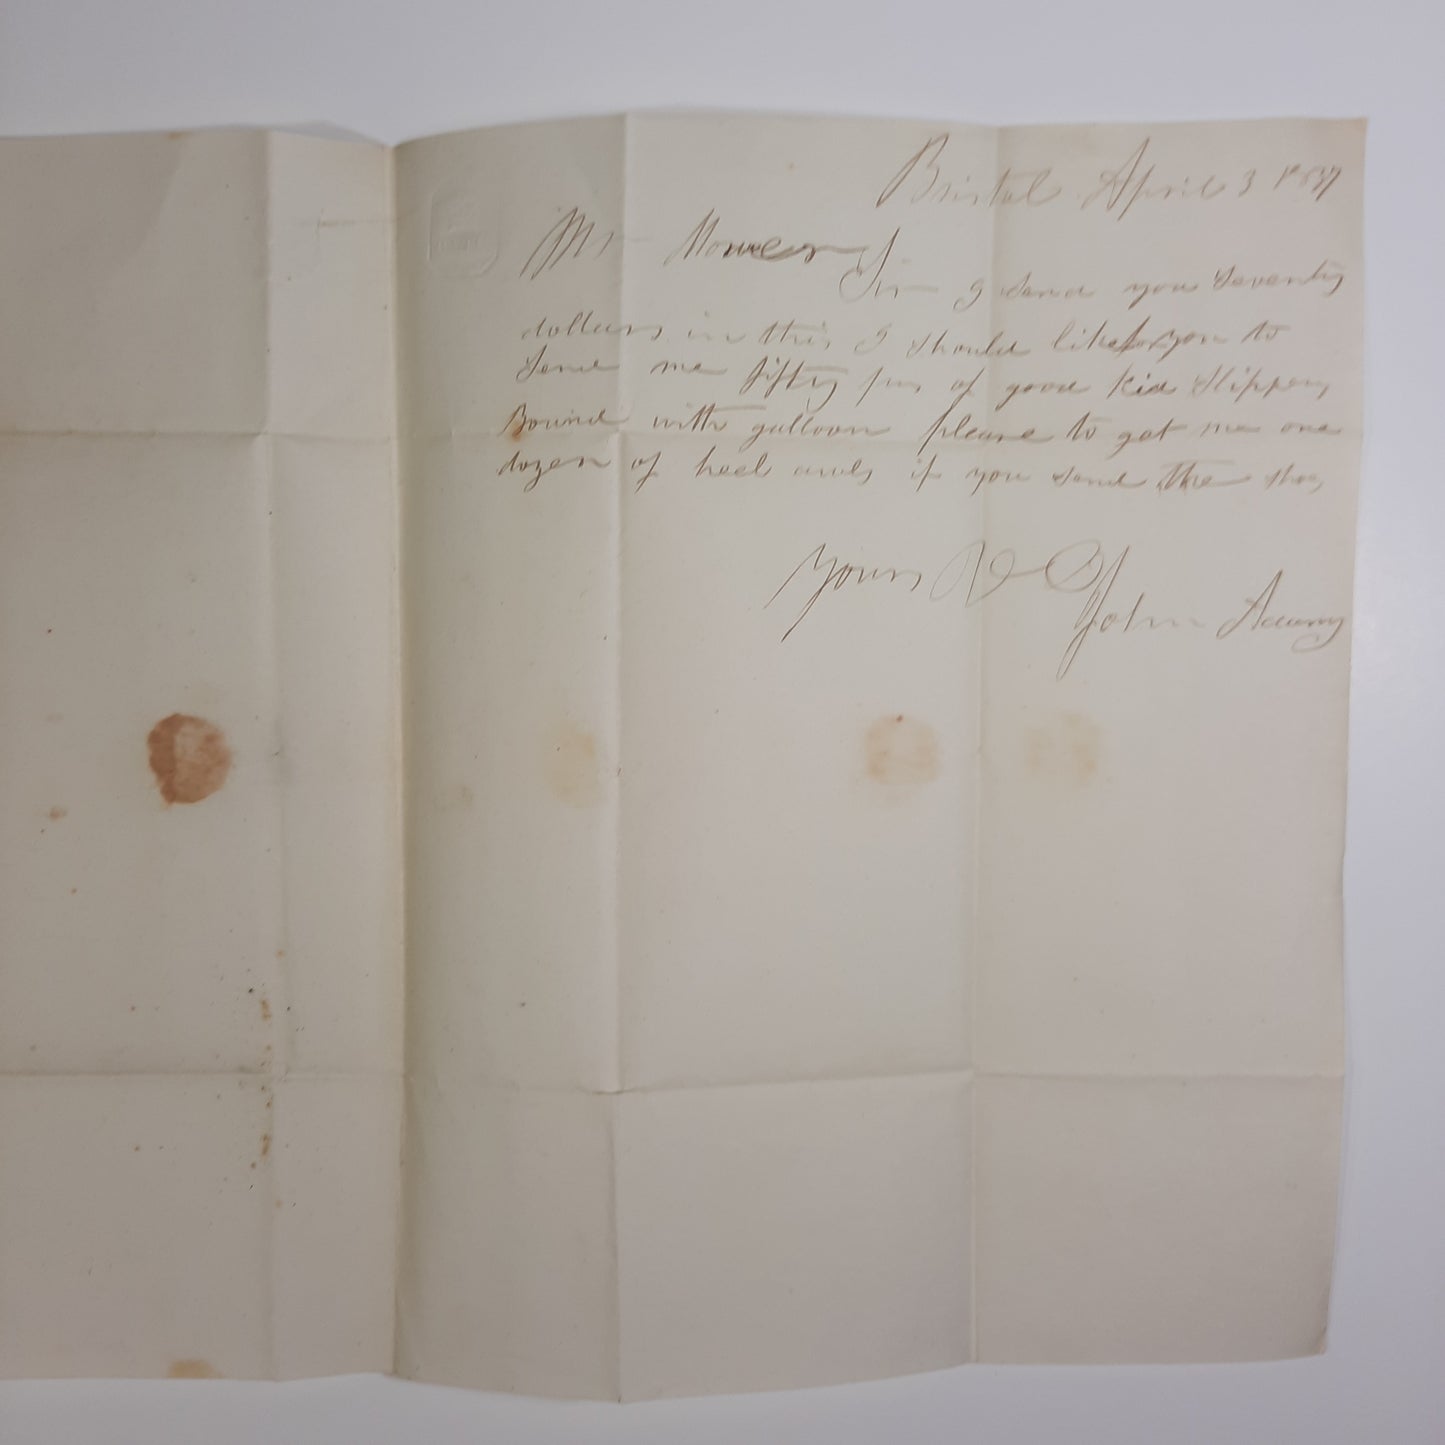 Bristol April 3 1837
Mr Mower
Sir I send you seventy
dollars in this I should like for you to
send me fifty prs of good kid slippers
Bound with galloon please to get me one
dozen of heel awls if you send the shoes
Yours
John Adams